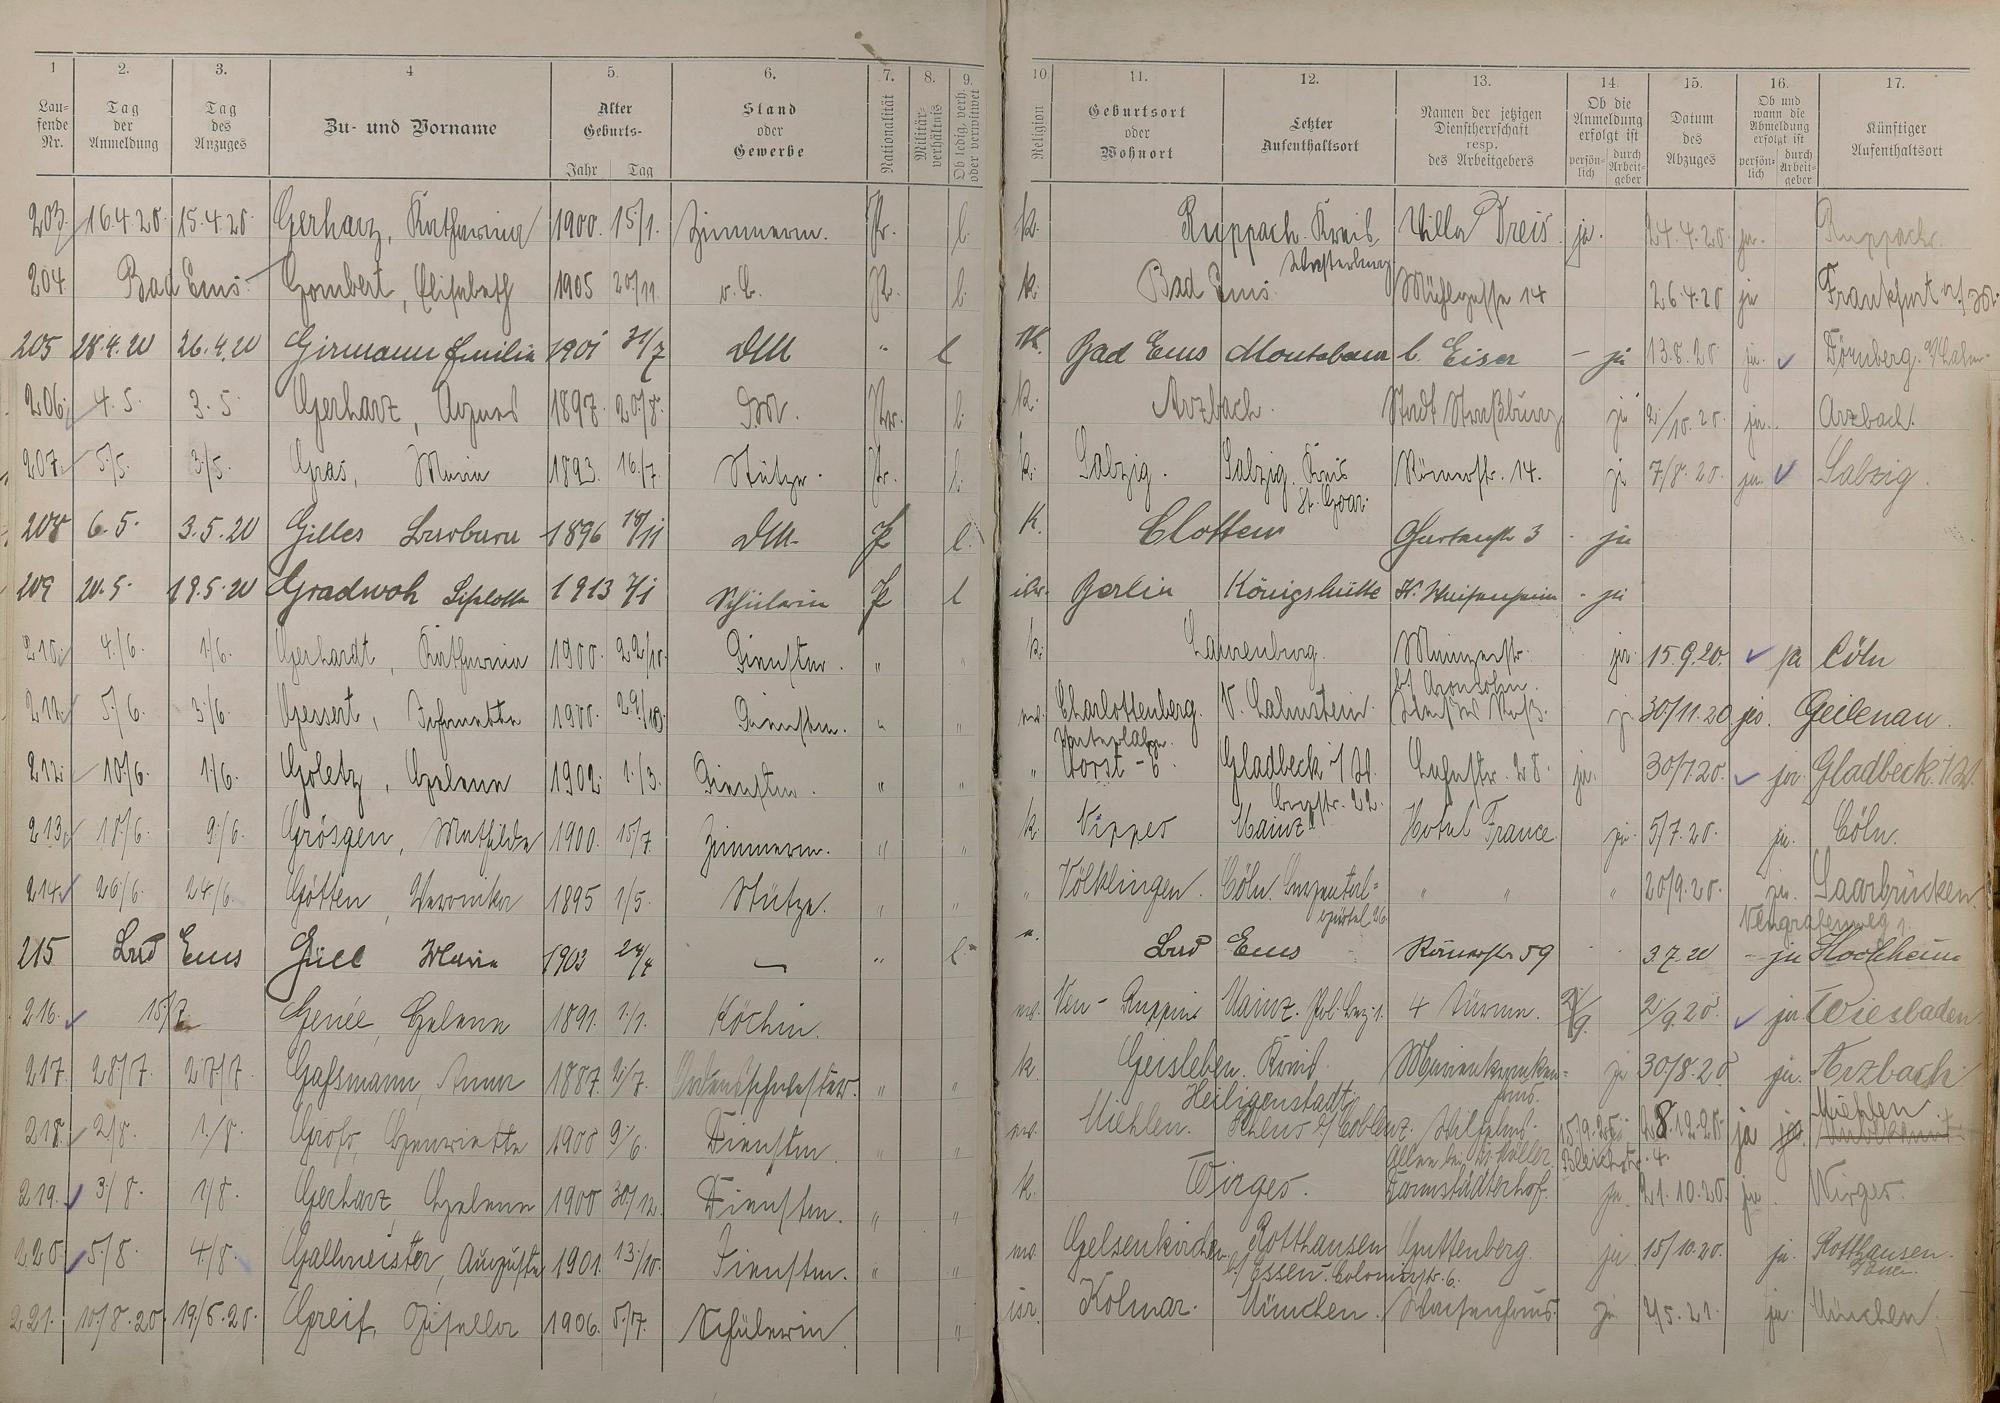 1 2. 3. 4 5. 6. 7. 8. 9. 10 11. 12. 13. 14. 15. 16. 17.
Lau-
fende
Nr.
Tag
der
Anmeldung
Tag
des
Anzuges
Zu- und Vorname
Alter
Geburts-
Jahr Tag
Stand
oder
Gewerbe
Nationalität
Militär-
verhältnis
Ob ledig, verh.
oder verwitwet
Religion
Geburtsort
oder
Wohnort
Letzter
Aufenthaltsort
Namen der jetzigen
Dienstherrschaft
resp.
des Arbeitgebers
Ob die
Anmeldung
erfolgt ist
persön-
lich
durch
Arbeit-
geber
Datum
des
Abzuges
Ob und
wann die
Abmeldung
erfolgt ist
persön-
lich
durch
Arbeit-
geber
Künftiger
Aufenthaltsort
203. 16.4.20 15.4.20. Gerharz, Katharina 1900. 15/1. Zimmerm. Pr. l. k. Ruppach. Kreis Villa Dreis ja. 24.4.20. ja. Ruppach.
Westerburg
204 Bad Ems Gombert, Elisabeth 1905 20/11 l. k. Bad Ems. Mühlgasse 14 26.4.20 ja Frankfurt a/M.
205 28.4.20 26.4.20 Girmann Emilie 1901 31/7 DM " l K. Bad Ems Montabaur b. Eiser - ja 13.8.20 ja. Dörnberg a/Lahn
206. 4.5. 3.5. Gerharz, Agnes 1897. 20/8. l. k. Arzbach. Stadt Straßburg ja 2/10.20. ja. Arzbach.
207. 5/5. 3/5. Gras, Maria 1893. 16/7. Stütze. Pr. l. k. Salzig. Salzig. Kreis Römerstr. 14. ja 7/8.20. ja. Salzig.
St. Goar.
208 6.5. 3.5.20 Gilles Barbara 1896 18/11 DM. P l. K. Clotten 3 - ja
209 20.5. 19.5.20 Gradwoh Liselotte 1913 7/1 Schülerin P l Berlin Königshütte - ja
210. 4./6. 1/6. Gerhardt, Katharina 1900. 22/10. Dienstm. " k. Mainzerstr. ja. 15.9.20. ja Cöln
211. 5/6. 3/6. Gessert, 1900. 29/10. Dienstm. " " ev. Charlottenberg. N. Lahnstein. ja. 30/11.20 ja. Geilenau.
Unterlahn.
212. 10/6. 1/6. Goletz, Helene 1902. 1./3. Dienstm. " " " Gladbeck i/W. 28. ja. 30/7.20. ja. Gladbeck i/W.
22.
213. 18/6. 9./6. Grösgen, Mathilde 1900. 15/7. Zimmerm. " " k. Nippes Mainz Hotel France ja. 5/7.20. ja. Cöln.
214. 26/6. 24/6. Götten, Veronika 1895 1/5. Stütze. " " " Völklingen. Cöln. " " " 20/9.20. ja. Saarbrücken.
215 Bad Ems Güll Maria 1903 24/4 — " l. " Bad Ems Römerstr 59 3.7.20 - ja Hochheim
216. 15/7. Genée, Helene 1891. 1./1. Köchin. ev. Neu-Ruppin Mainz. 4 Türme. 2/9.20. ja. Wiesbaden
217. 28/7. 27/7. Gaßmann, Anna 1887. 2/7. Ordensschwester. " " k. Geisleben. Kreis Marienkranken= ja 30/8.20 ja. Arzbach
Heiligenstadt haus.
218. 2/8. 1./8. Groß, Henriette 1900 9./6. Dienstm. " " ev. Miehlen. Rhens b/Coblenz. Wilhelms- 8.12.20. ja Miehlen
219. 3/8. 1/8. Gerharz, Helene 1900 30/12. Dienstm. " " k. Wirges. Darmstädterhof. ja. 21.10.20. ja. Wirges.
220. 5/8. 4/8. Gallmeister, Auguste 1901. 13./10. Dienstm. " " ev. Gelsenkirchen. Rotthausen Guttenberg. ja. 15/10.20. ja. Rotthausen.
b/ Essen. Colonie
221. 10/8.20 19/5.20. Greif, Gisella 1906. 5/7. Schülerin " isr. Kolmar. München. Waisenhaus. ja 2/5.21. ja. München.